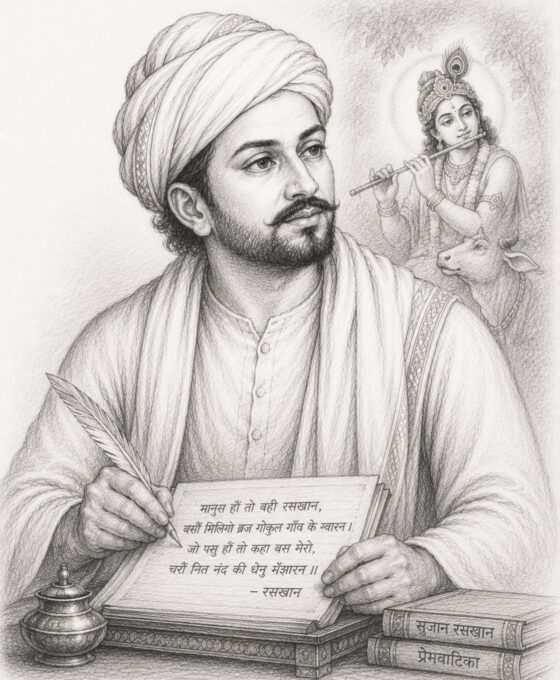 मानुस हौं तो वही रसखान,
बसौं मिलिगो ब्रज गोकुल गाँव के ग्वारन।
जो पसु हौं तो कहा बस मेरो,
चरौं नित नंद की धेनु मँझारन॥
– रसखान
सुजान रसखान
प्रेमवाटिका